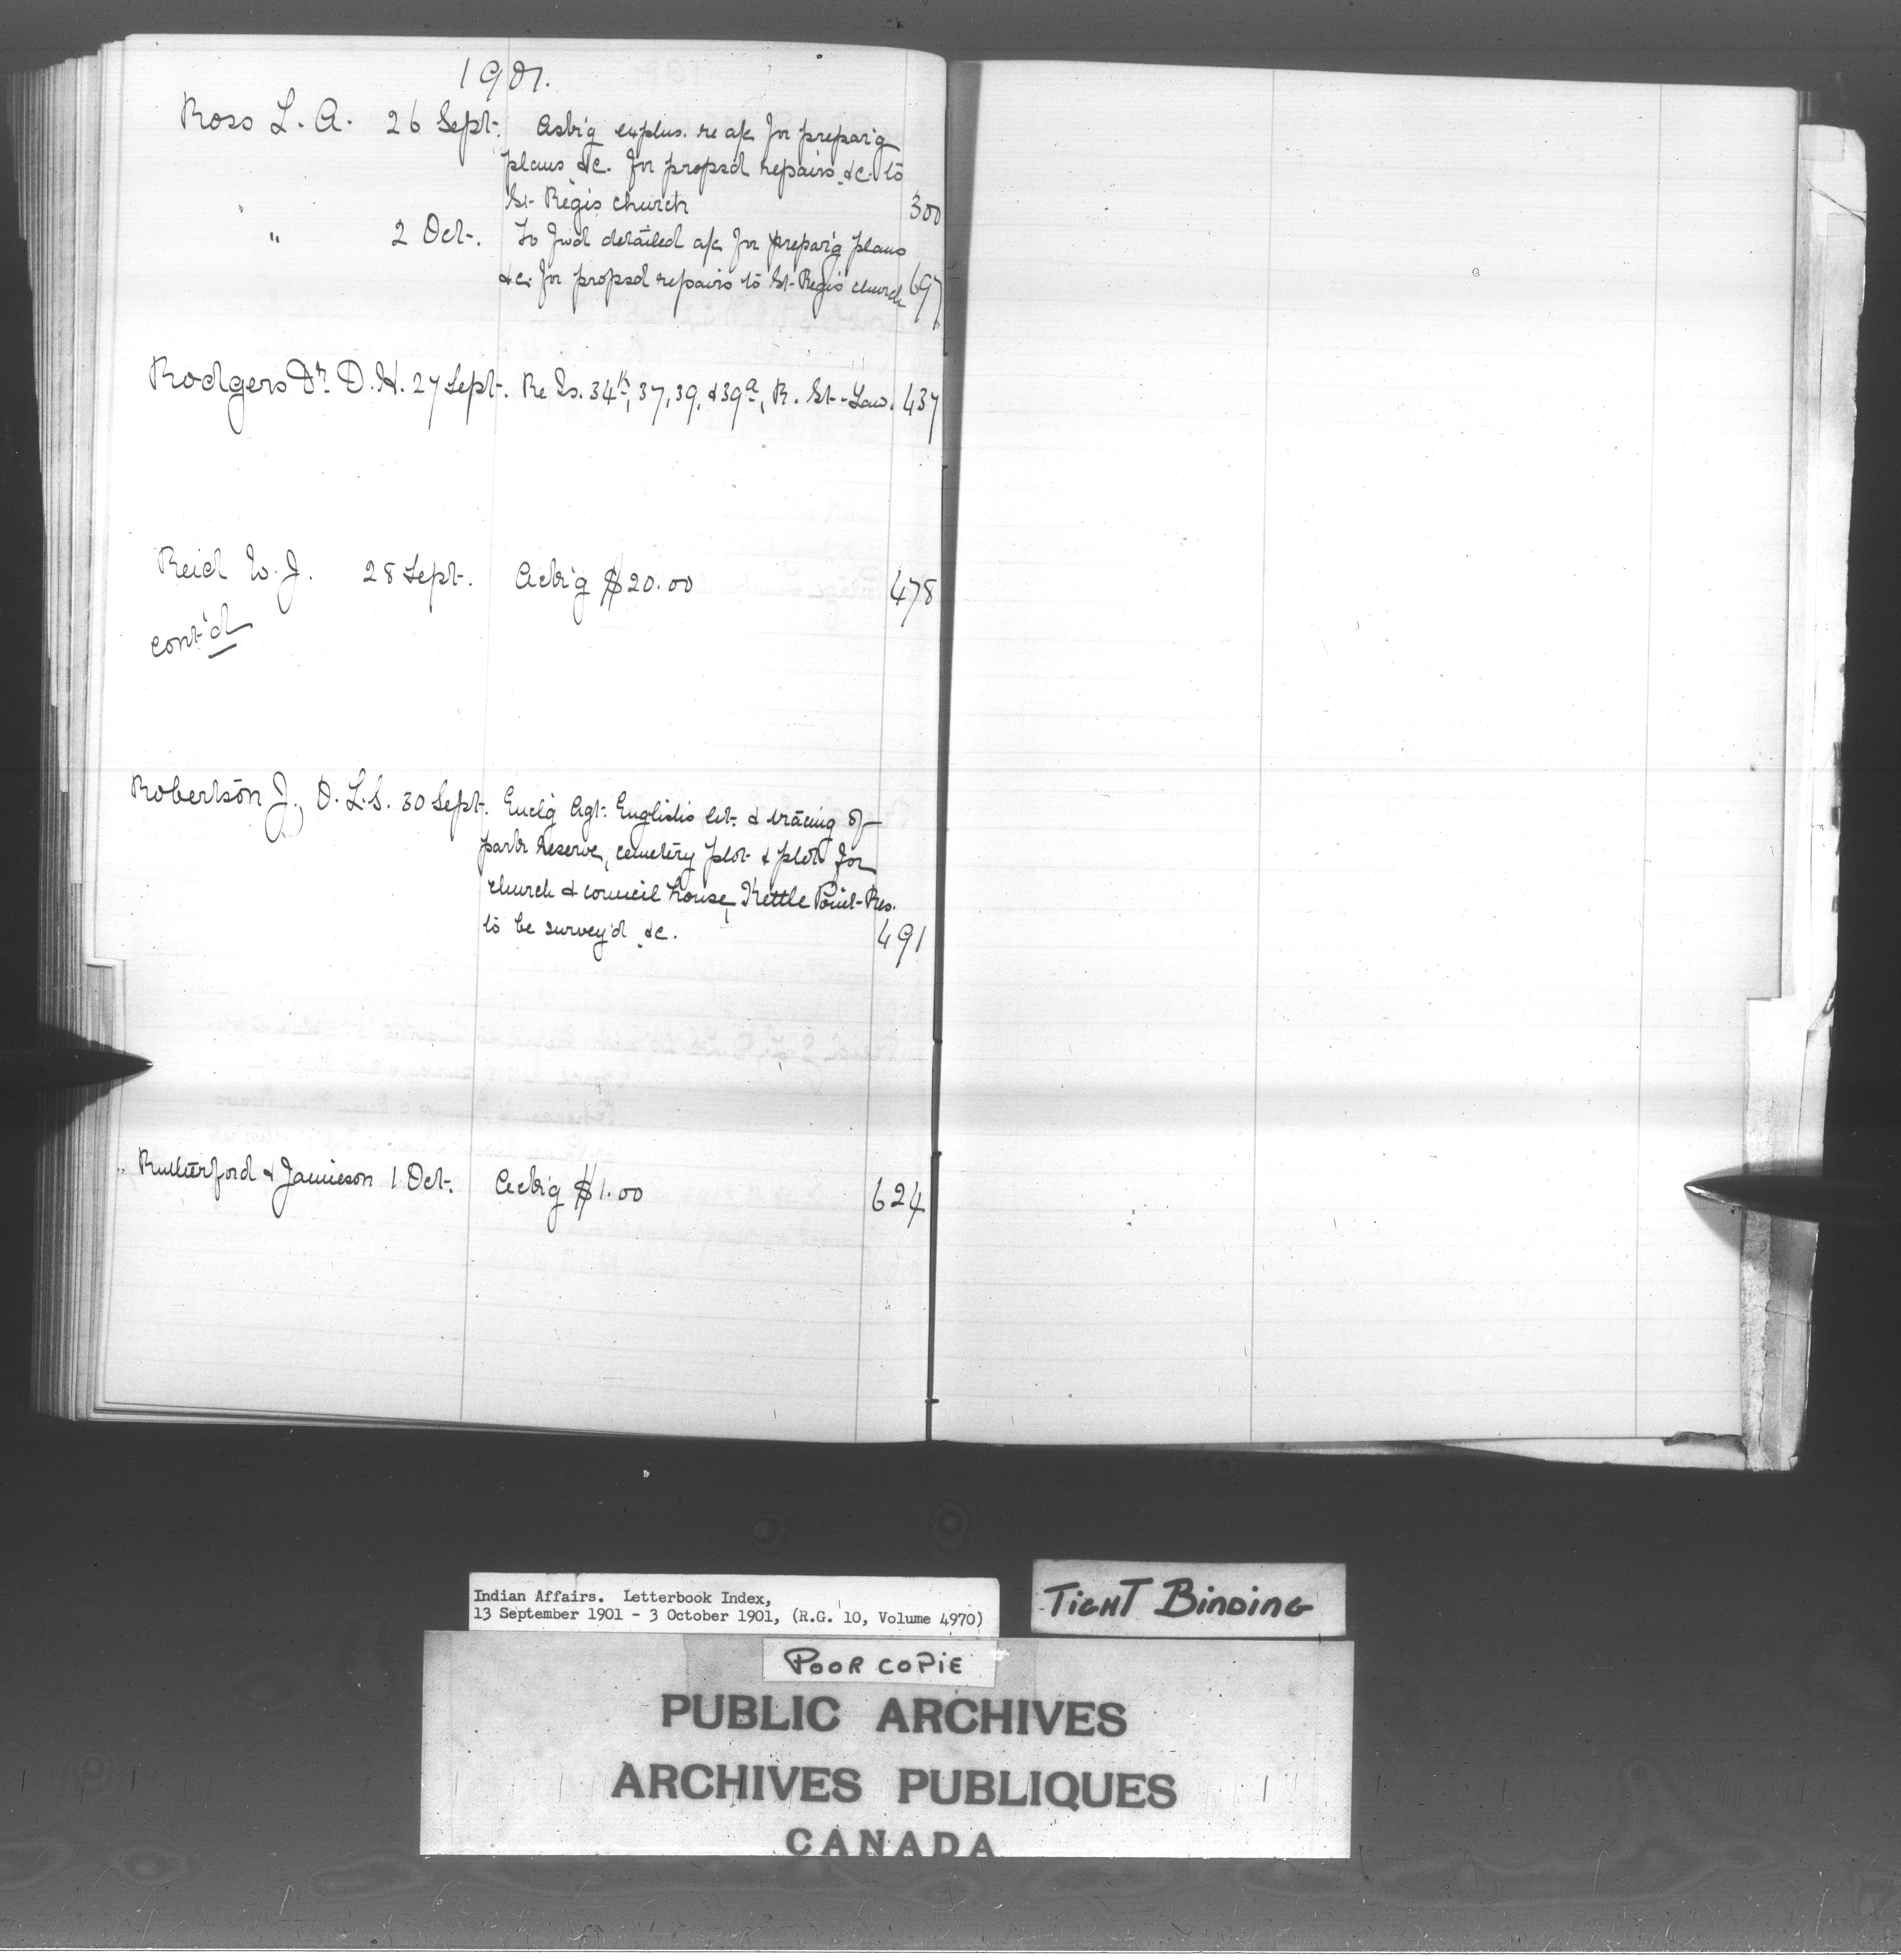 1901.
Ross L. A. 26 Sept. Ask'g explns. re a/c for prepar'g
plans &c. for propsd repairs &c. to
St. Regis church 300
" 2 Oct. To fwd detailed a/c for prepar'g plans
&c. for propsd repairs to St. Regis church 697
Rodgers Dr. D. H. 27 Sept. Re Is. 34K, 37, 39, & 39a, R. St. Law. 437
Reid W. J. 28 Sept. Ackg $20.00 478
cont'd
Robertson J., O. L. S. 30 Sept. Enclg Agt. English's let. & tracing of
park reserve, cemetery plot & plot for
church & council house, Kettle Point Res.
to be survey'd &c. 491
Rutherford & Jamieson 1 Oct. Ackg $1.00 624
Indian Affairs. Letterbook Index,
13 September 1901 - 3 October 1901, (R.G. 10, Volume 4970)
TIGHT BINDING
POOR COPIE
PUBLIC ARCHIVES
ARCHIVES PUBLIQUES
CANADA